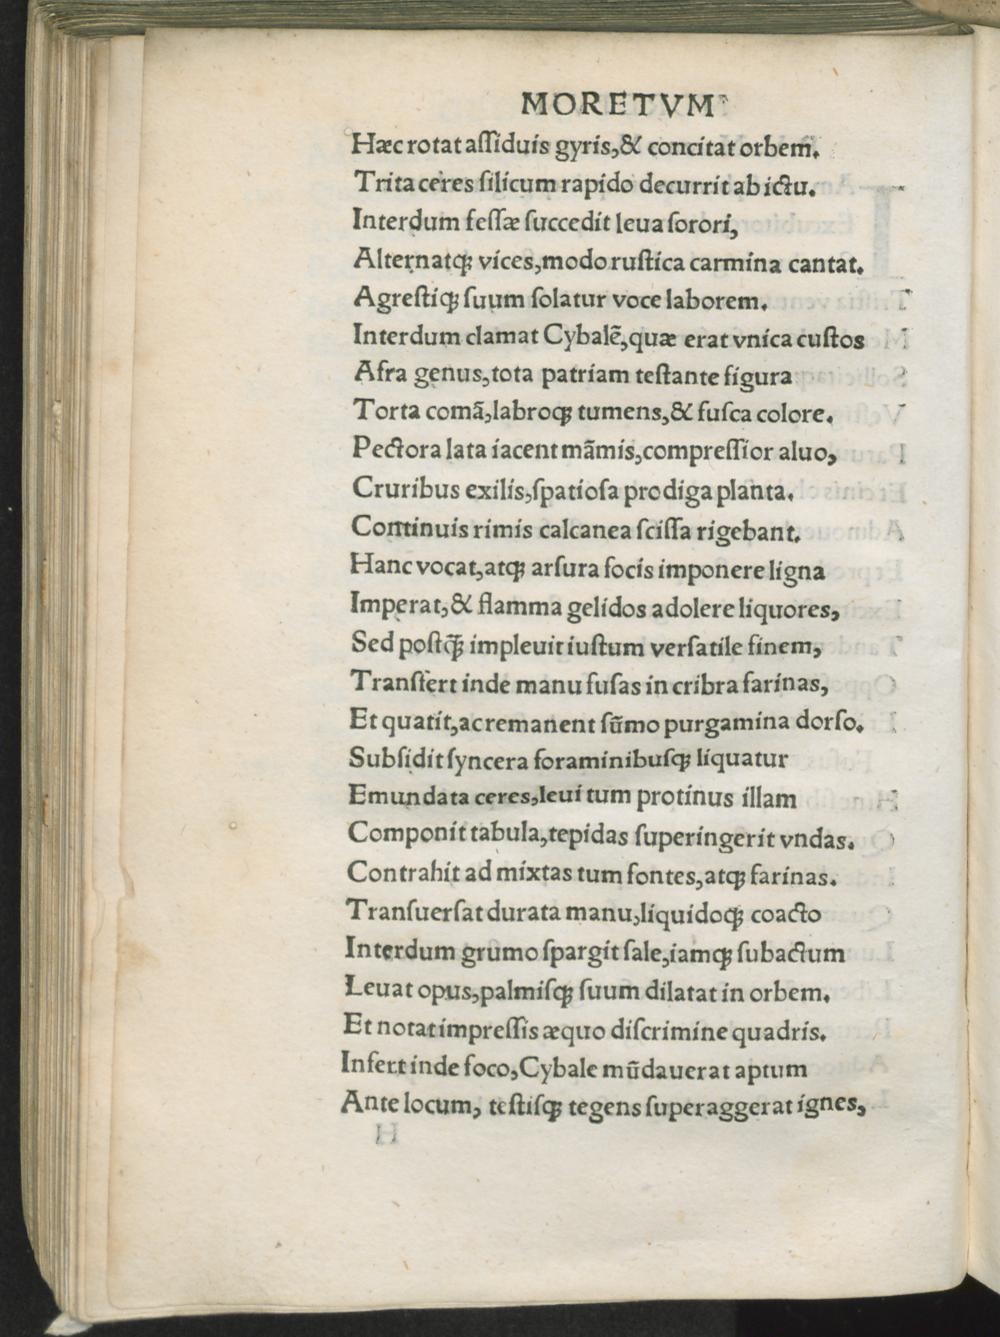 MORETVM
Hæc rotat aſſiduis gyris,& concitat orbem.
Trita ceres ſilicum rapido decurrit ab ictu.
Interdum feſſæ ſuccedit leua ſorori,
Alternatq; vices,modo ruſtica carmina cantat.
Agreſtiq; ſuum ſolatur voce laborem.
Interdum clamat Cybalē,quæ erat vnica cuſtos
Afra genus,tota patriam teſtante figura
Torta comã,labroq; tumens,& fuſca colore.
Pectora lata iacent mãmis,compreſſior aluo,
Cruribus exilis,ſpatioſa prodiga planta.
Continuis rimis calcanea ſciſſa rigebant.
Hanc vocat,atq; arſura focis imponere ligna
Imperat,& flamma gelidos adolere liquores,
Sed poſtq̃; impleuit iuſtum verſatile finem,
Transfert inde manu fuſas in cribra farinas,
Et quatit,ac remanent ſũmo purgamina dorſo.
Subſidit ſyncera foraminibuſq; liquatur
Emundata ceres,leui tum protinus illam
Componit tabula,tepidas ſuperingerit vndas.
Contrahit ad mixtas tum fontes,atq; farinas.
Tranſuerſat durata manu,liquidoq; coacto
Interdum grumo ſpargit ſale,iamq; ſubactum
Leuat opus,palmiſq; ſuum dilatat in orbem.
Et notat impreſſis æquo diſcrimine quadris.
Infert inde foco,Cybale mũdauerat aptum
Ante locum, teſtiſq; tegens ſuperaggerat ignes,